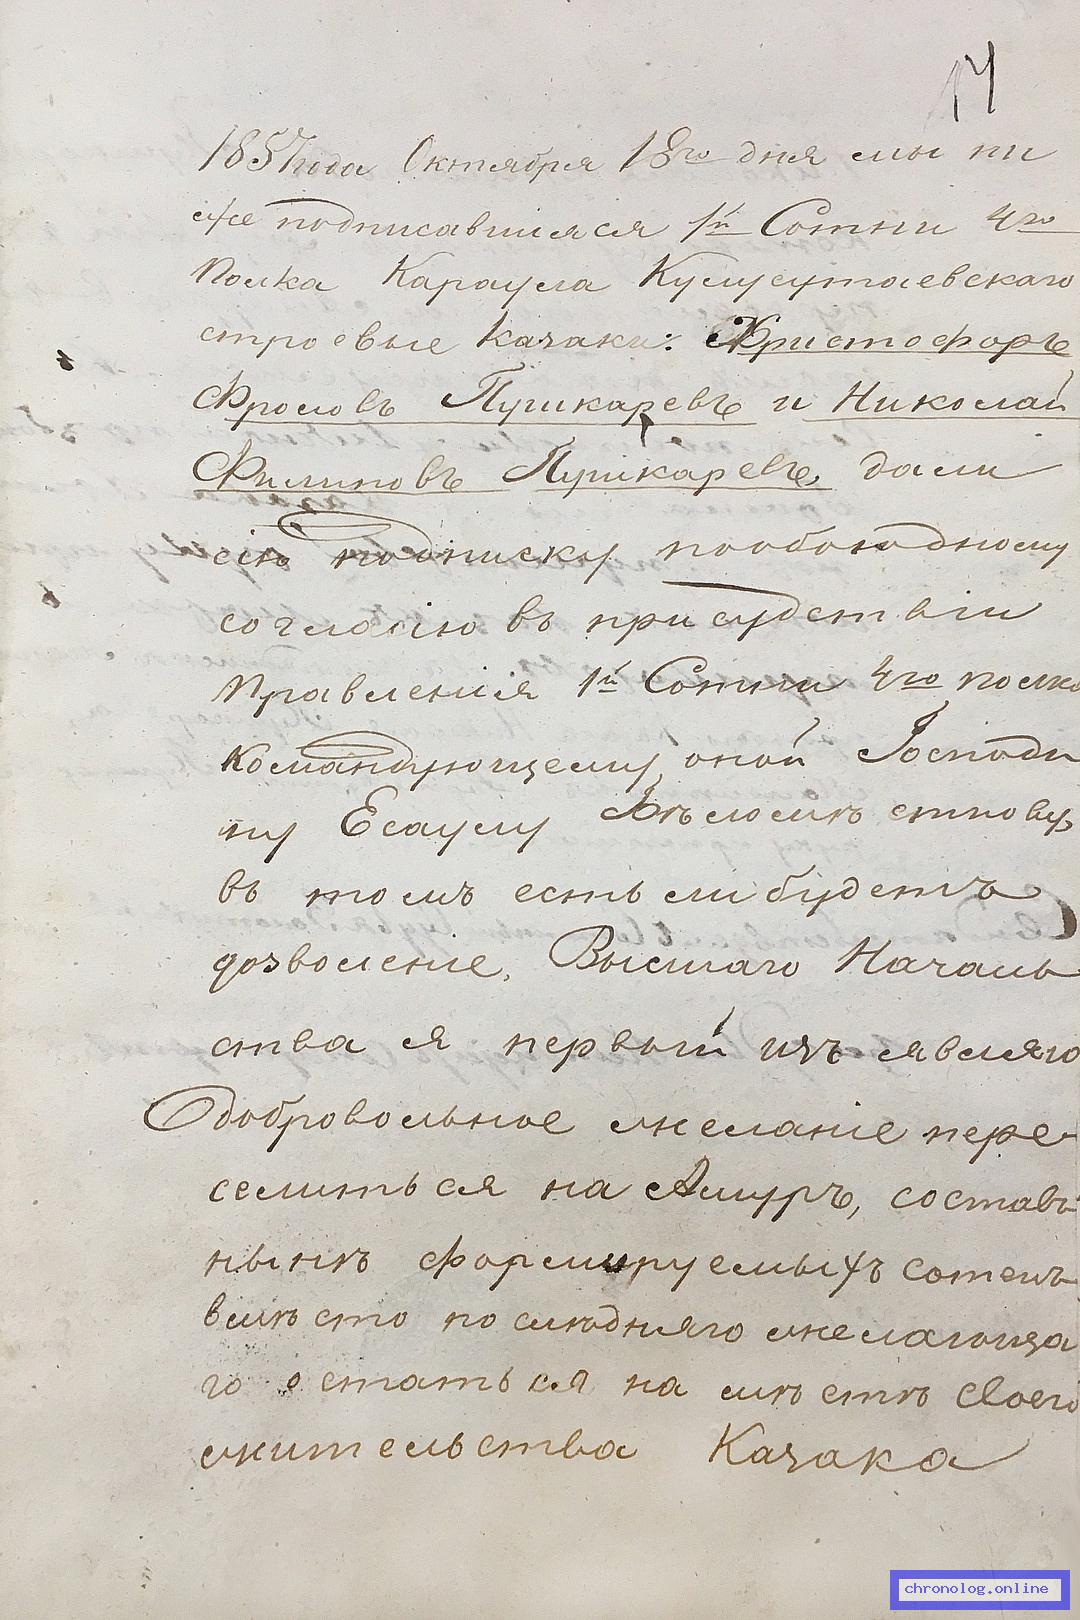 14
1857 года Октября 18го дня мы ни
же подписавшіяся 1й Сотни 4го
Полка Караула Кулусутаевскаго
строевые казаки: Христофоръ
Фроловъ Пушкаревъ и Николай
Филиповъ Пушкаревъ, дали
сію подписку пообоюдному
согласію въ присудствіи
Правленія 1й Сотни 4го полка
командующему оной Господи
ну Есаулу
въ томъ естьли будетъ
дозволеніе, Высшаго Началь
ства я первый изъ являю
добровольное желаніе пере
селиться на Амуръ, составъ
нынѣ формируемыхъ сотень
вмѣсто послѣдняго желающа
го остаться на мѣстѣ своего
жительства Казака
chronolog.online